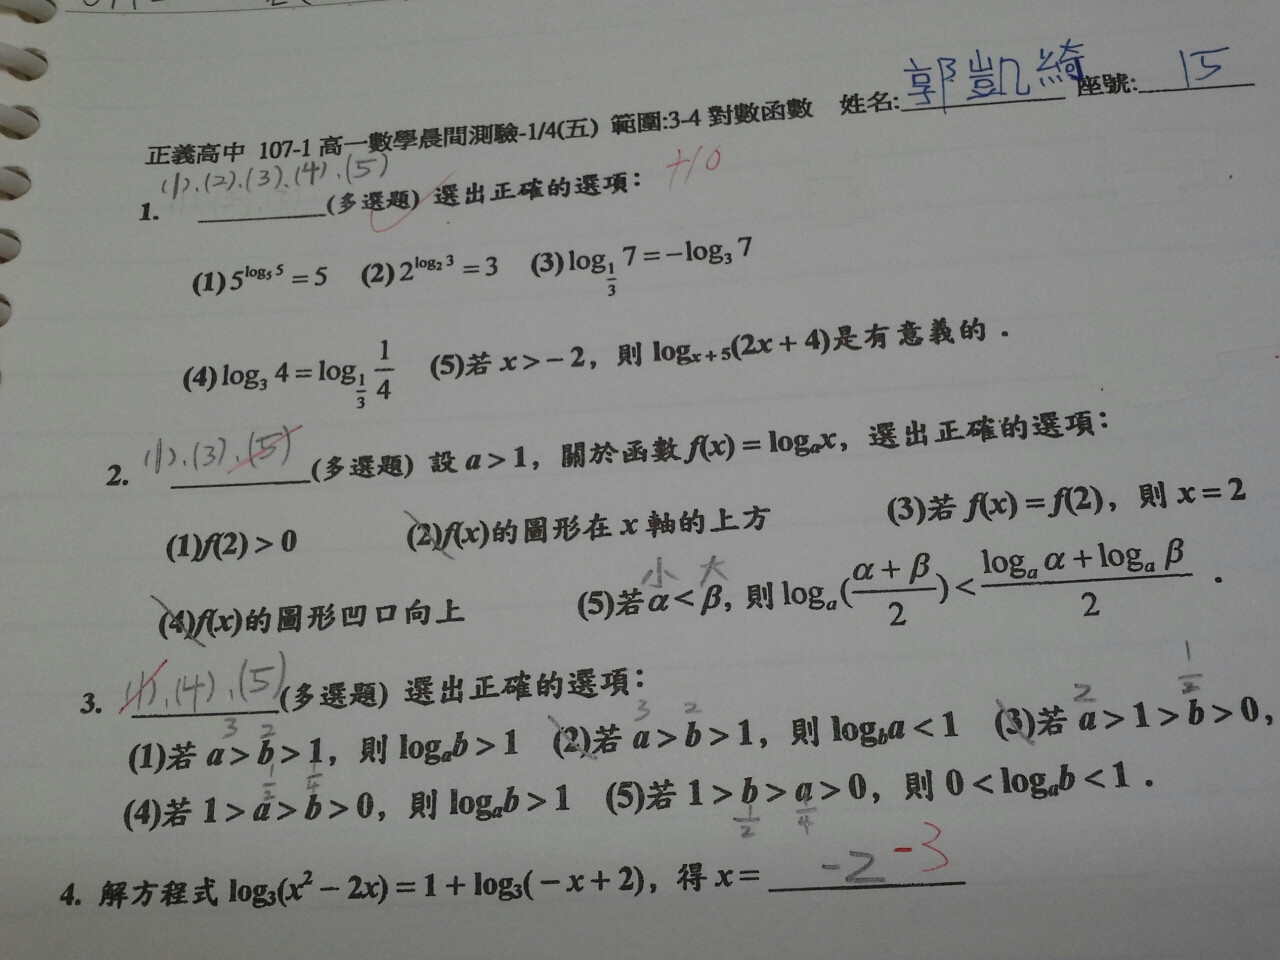 正義高中 107-1 高一數學晨間測驗-1/4(五) 範圍:3-4 對數函數 姓名:郭凱綺 座號:15
1. (1).(2).(3).(4).(5) (多選題) 選出正確的選項: +10
(1) 5^{log₅ 5} = 5 (2) 2^{log₂ 3} = 3 (3) log_{1/3} 7 = −log₃ 7
(4) log₃ 4 = log_{1/3} 1/4 (5)若 x > − 2, 則 log_{x+5}(2x + 4)是有意義的.
2. (1).(3).(5) (多選題) 設 a > 1, 關於函數 f(x) = logₐx, 選出正確的選項:
(1)f(2) > 0 (2)f(x)的圖形在 x 軸的上方 (3)若 f(x) = f(2), 則 x = 2
小 大
(4)f(x)的圖形凹口向上 (5)若 α < β, 則 logₐ((α + β)/2) < (logₐ α + logₐ β)/2 .
3. (1).(4).(5) (多選題) 選出正確的選項:
3 2 3 2 2 1/2
(1)若 a > b > 1, 則 logₐb > 1 (2)若 a > b > 1, 則 log_b a < 1 (3)若 a > 1 > b > 0,
1/2 1/4
(4)若 1 > a > b > 0, 則 logₐb > 1 (5)若 1 > b > a > 0, 則 0 < logₐb < 1 .
1/2 1/4
4. 解方程式 log₃(x² − 2x) = 1 + log₃( − x + 2), 得 x = -2 -3